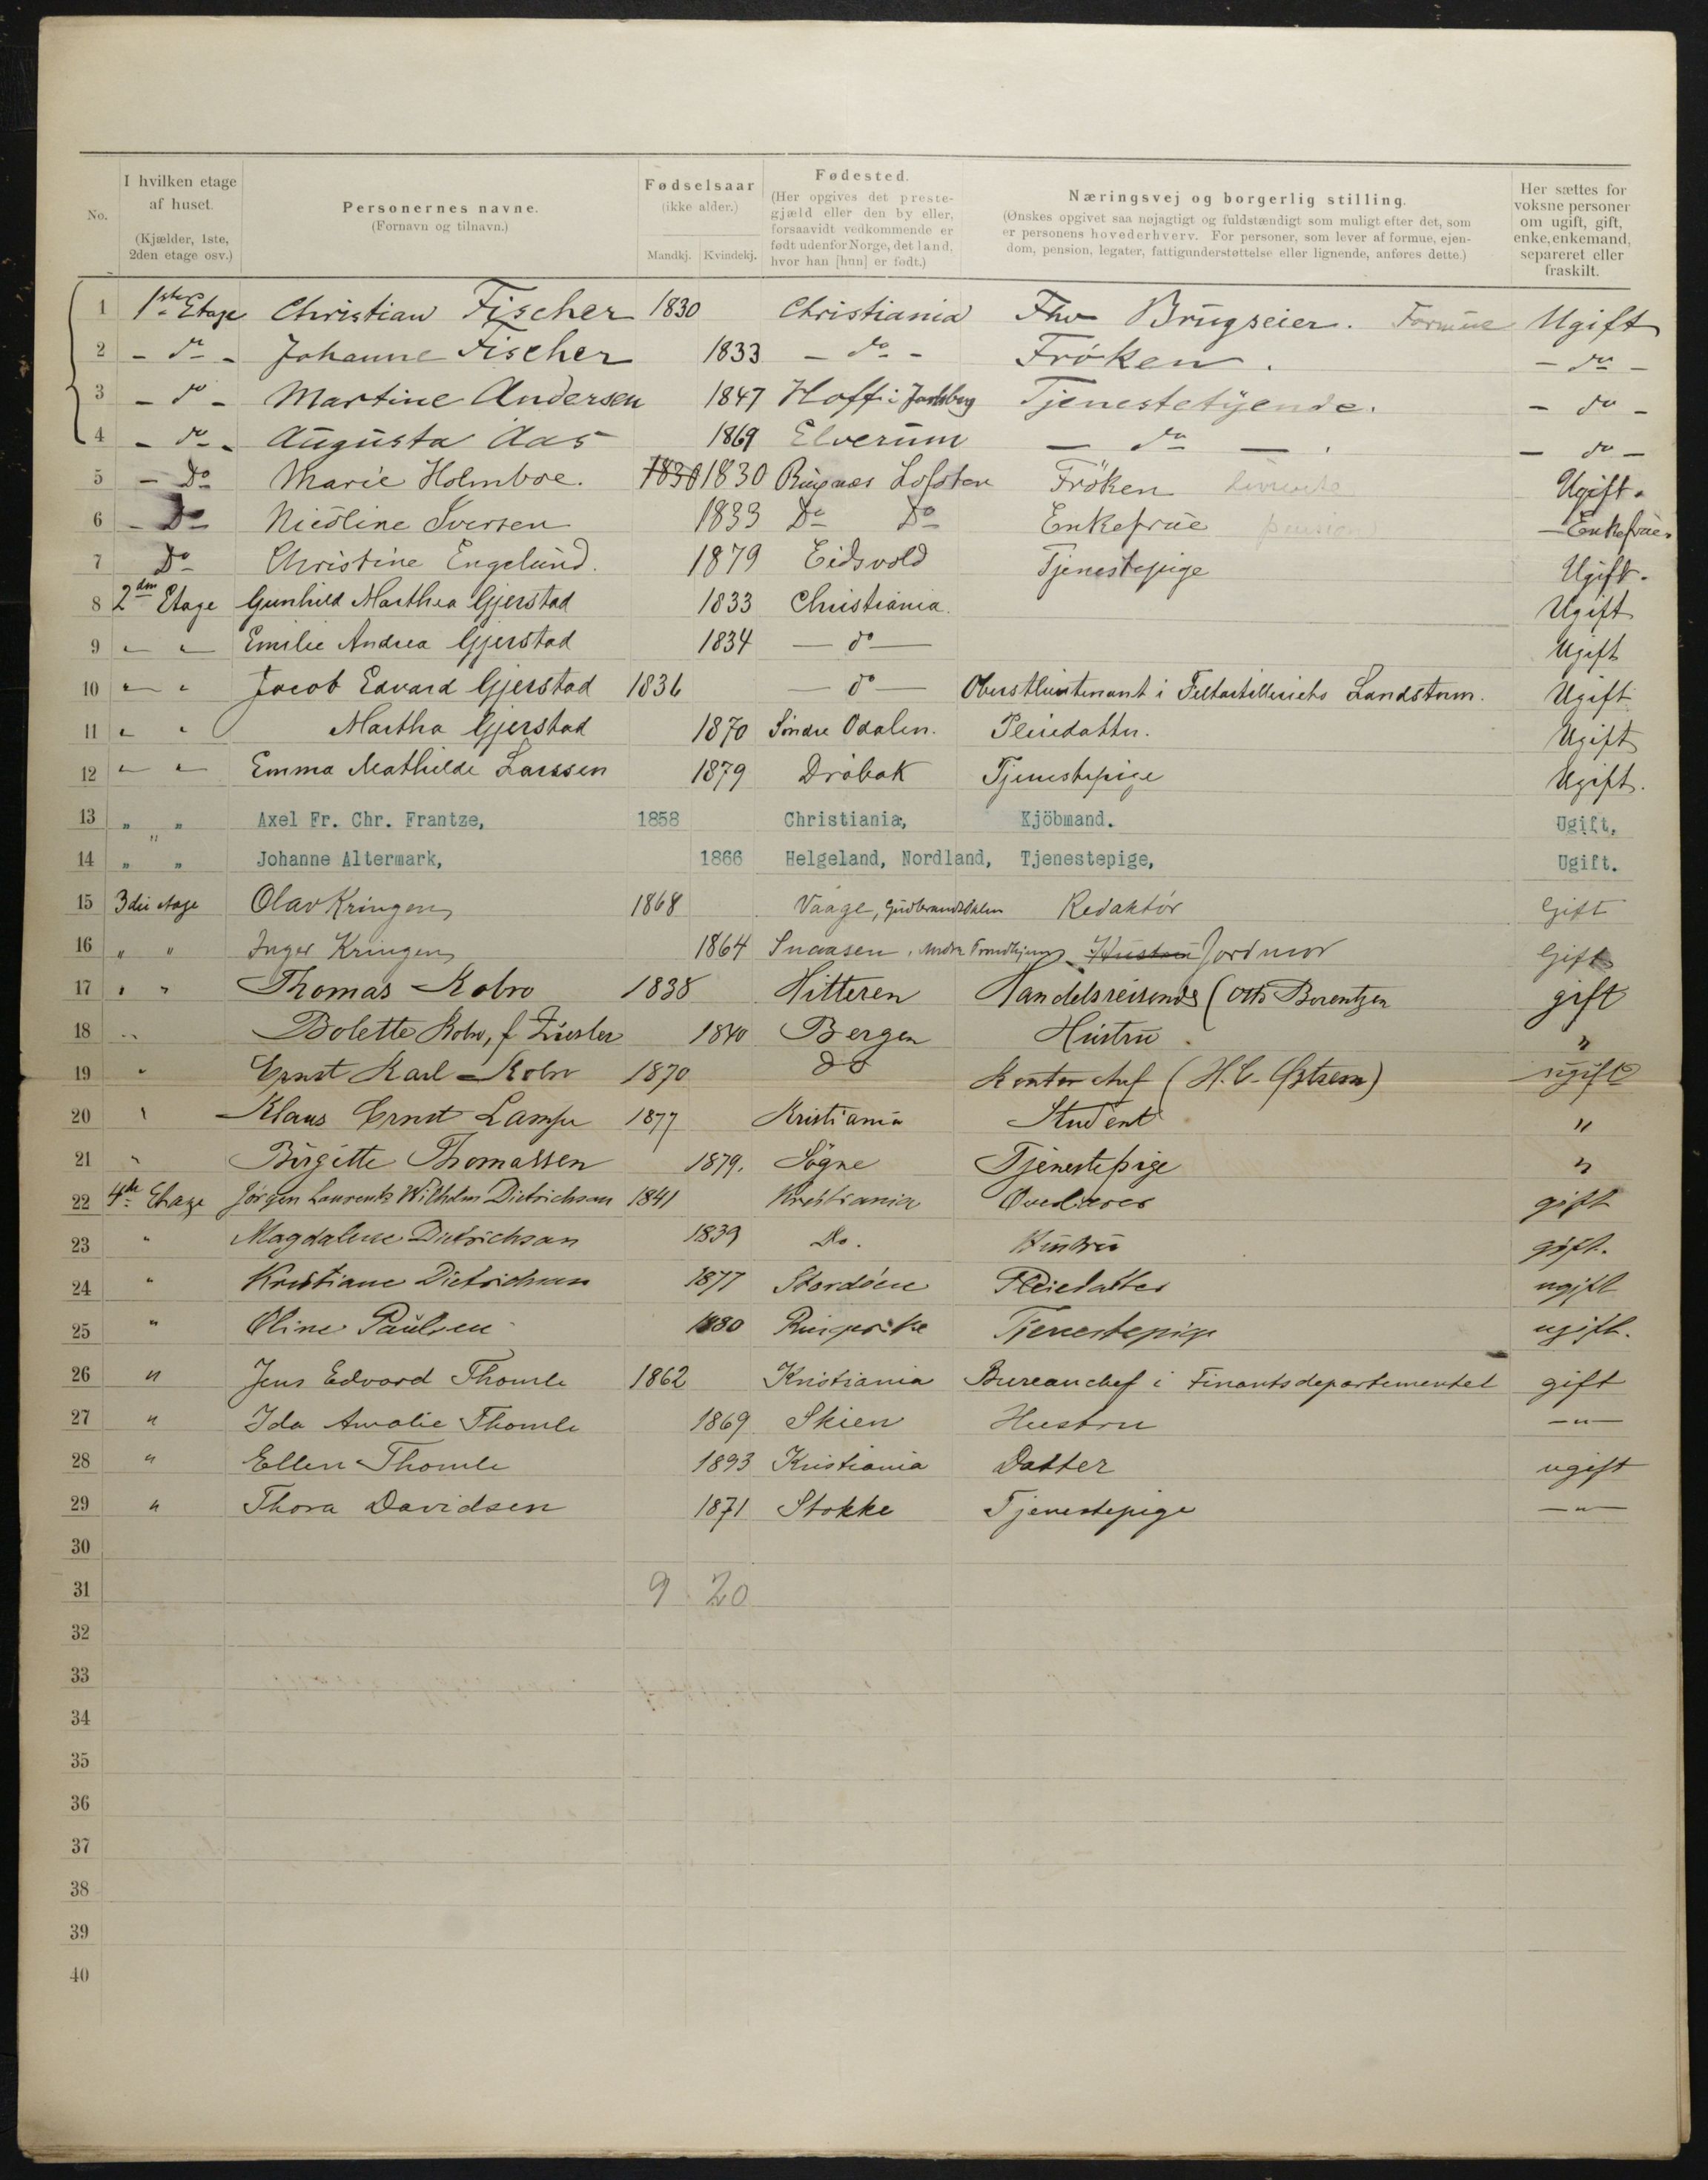 No.
I hvilken etage
af huset.
(Kjælder, 1ste,
2den etage osv.)
Personernes navne.
(Fornavn og tilnavn.)
Fødselsaar
(ikke alder.)
Mandkj. Kvindekj.
Fødested.
(Her opgives det preste-
gjæld eller den by eller,
forsaavidt vedkommende er
født udenfor Norge, det land,
hvor han [hun] er født.)
Næringsvej og borgerlig stilling.
(Ønskes opgivet saa nøjagtigt og fuldstændigt som muligt efter det, som
er personens hovederhverv. For personer, som lever af formue, ejen-
dom, pension, legater, fattigunderstøttelse eller lignende, anføres dette.)
Her sættes for
voksne personer
om ugift, gift,
enke, enkemand,
separeret eller
fraskilt.
1 1ste Etage Christian Fischer 1830 Christiania Fhv Brugseier. Formue Ugift
2 - do - Johanne Fischer 1833 - do - Frøken. - do -
3 - do - Martine Andersen 1847 Hoff i Jarlsberg Tjenestetyende. - do -
4 - do - Augusta Aas 1869 Elverum - do - . - do -
5 - Do Marie Holmboe. 1830 1830 Lofoten Frøken Ugift.
6 - Do Nicoline Iversen 1833 Do Do Enkefrue pension - Enkefrue.
7 Do Christine Engelund. 1879 Eidsvold Tjenestepige Ugift.
8 2den Etage Gunhild Marthea Gjerstad 1833 Christiania. Ugift
9 " " Emilie Andrea Gjerstad 1834 - do - Ugift
10 " " Jacob Edvard Gjerstad 1836 - do - Oberstlieutenant i Feltartilleriets Landstorm. Ugift
11 " " Martha Gjerstad 1870 Söndre Odalen. Pleiedatter. Ugift
12 " " Emma Mathilde Larssen 1879 Dröbak Tjenestepige Ugift.
13 " " Axel Fr. Chr. Frantze, 1858 Christiania, Kjöbmand. Ugift,
14 " " " Johanne Altermark, 1866 Helgeland, Nordland, Tjenestepige, Ugift.
15 3die etage Olav Kringen 1868 Vaage, Gudbrandsdalen Redaktör Gift
16 " " Inger Kringen 1864 Snaasen, Nordre Trondhjem Hustru Jordmor Gift
17 " " Thomas Kobro 1838 Hitteren Handelsreisende (Otto Berentzen gift
18 " Bolette Kobro, f. 1840 Bergen Hustru "
19 " Ernst Karl Kobro 1870 do Kontorchef (H. C. Østrem) ugift
20 " Klaus Ernst Lampe 1877 Kristiania Student "
21 " Birgitte Thomassen 1879. Sögne Tjenestepige "
22 4de Etage Jörgen Laurentz Wilhelm Dietrichson 1841 Kristiania gift
23 " Magdalene Dietrichson 1839 Do. Hustru gift.
24 " Kristiane Dietrichson 1877 Stordöen Pleiedatter ugift
25 " Oline Paulsen 1880 Ringerike Tjenestepige ugift.
26 " Jens Edvard Thomle 1862 Kristiania Bureauchef i Finantsdepartementet gift
27 " Ida Amalie Thomle 1869 Skien Hustru - " -
28 " Ellen Thomle 1893 Kristiania Datter ugift
29 " Thora Davidsen 1871 Stokke Tjenestepige - " -
30
31 9 20
32
33
34
35
36
37
38
39
40